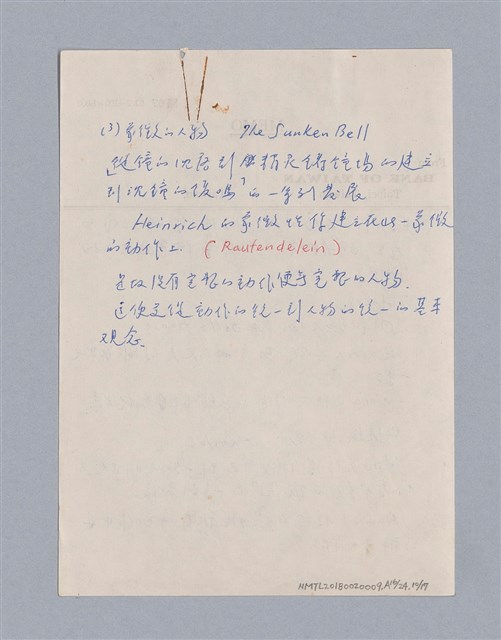 (3) 象徵的人物 The Sunken Bell
「從鐘的沈落到無稽天鑄鐘場的建立
到沈鐘的復鳴」的一系列發展
Heinrich 的象徵性係建立在此一象徵
的動作上. (Rautendelein)
是故沒有完整的動作便無完整的人物.
這便是從動作的統一到人物的統一的基本
觀念.
NMTL20180020009,A